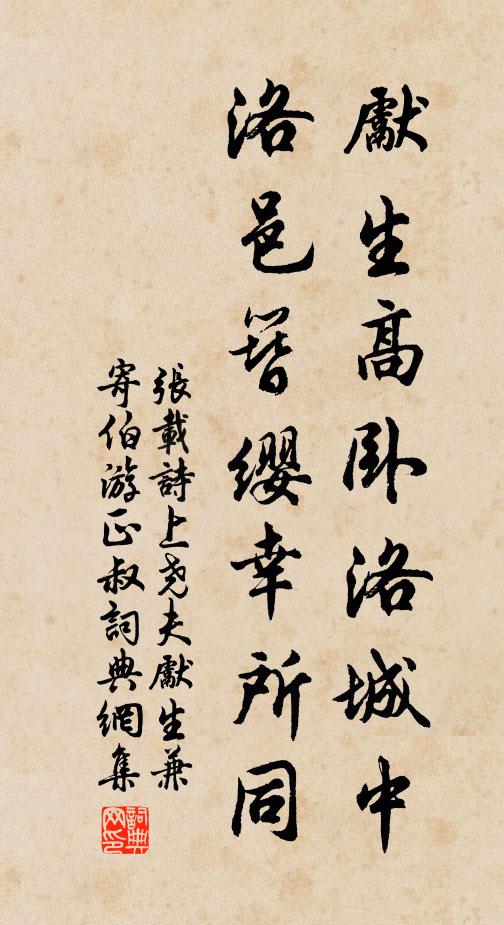 獻生高卧洛城中
洛邑簪纓幸所同
張載詩上堯夫獻生兼
寄伯游正叔詞典網集
詞典网印